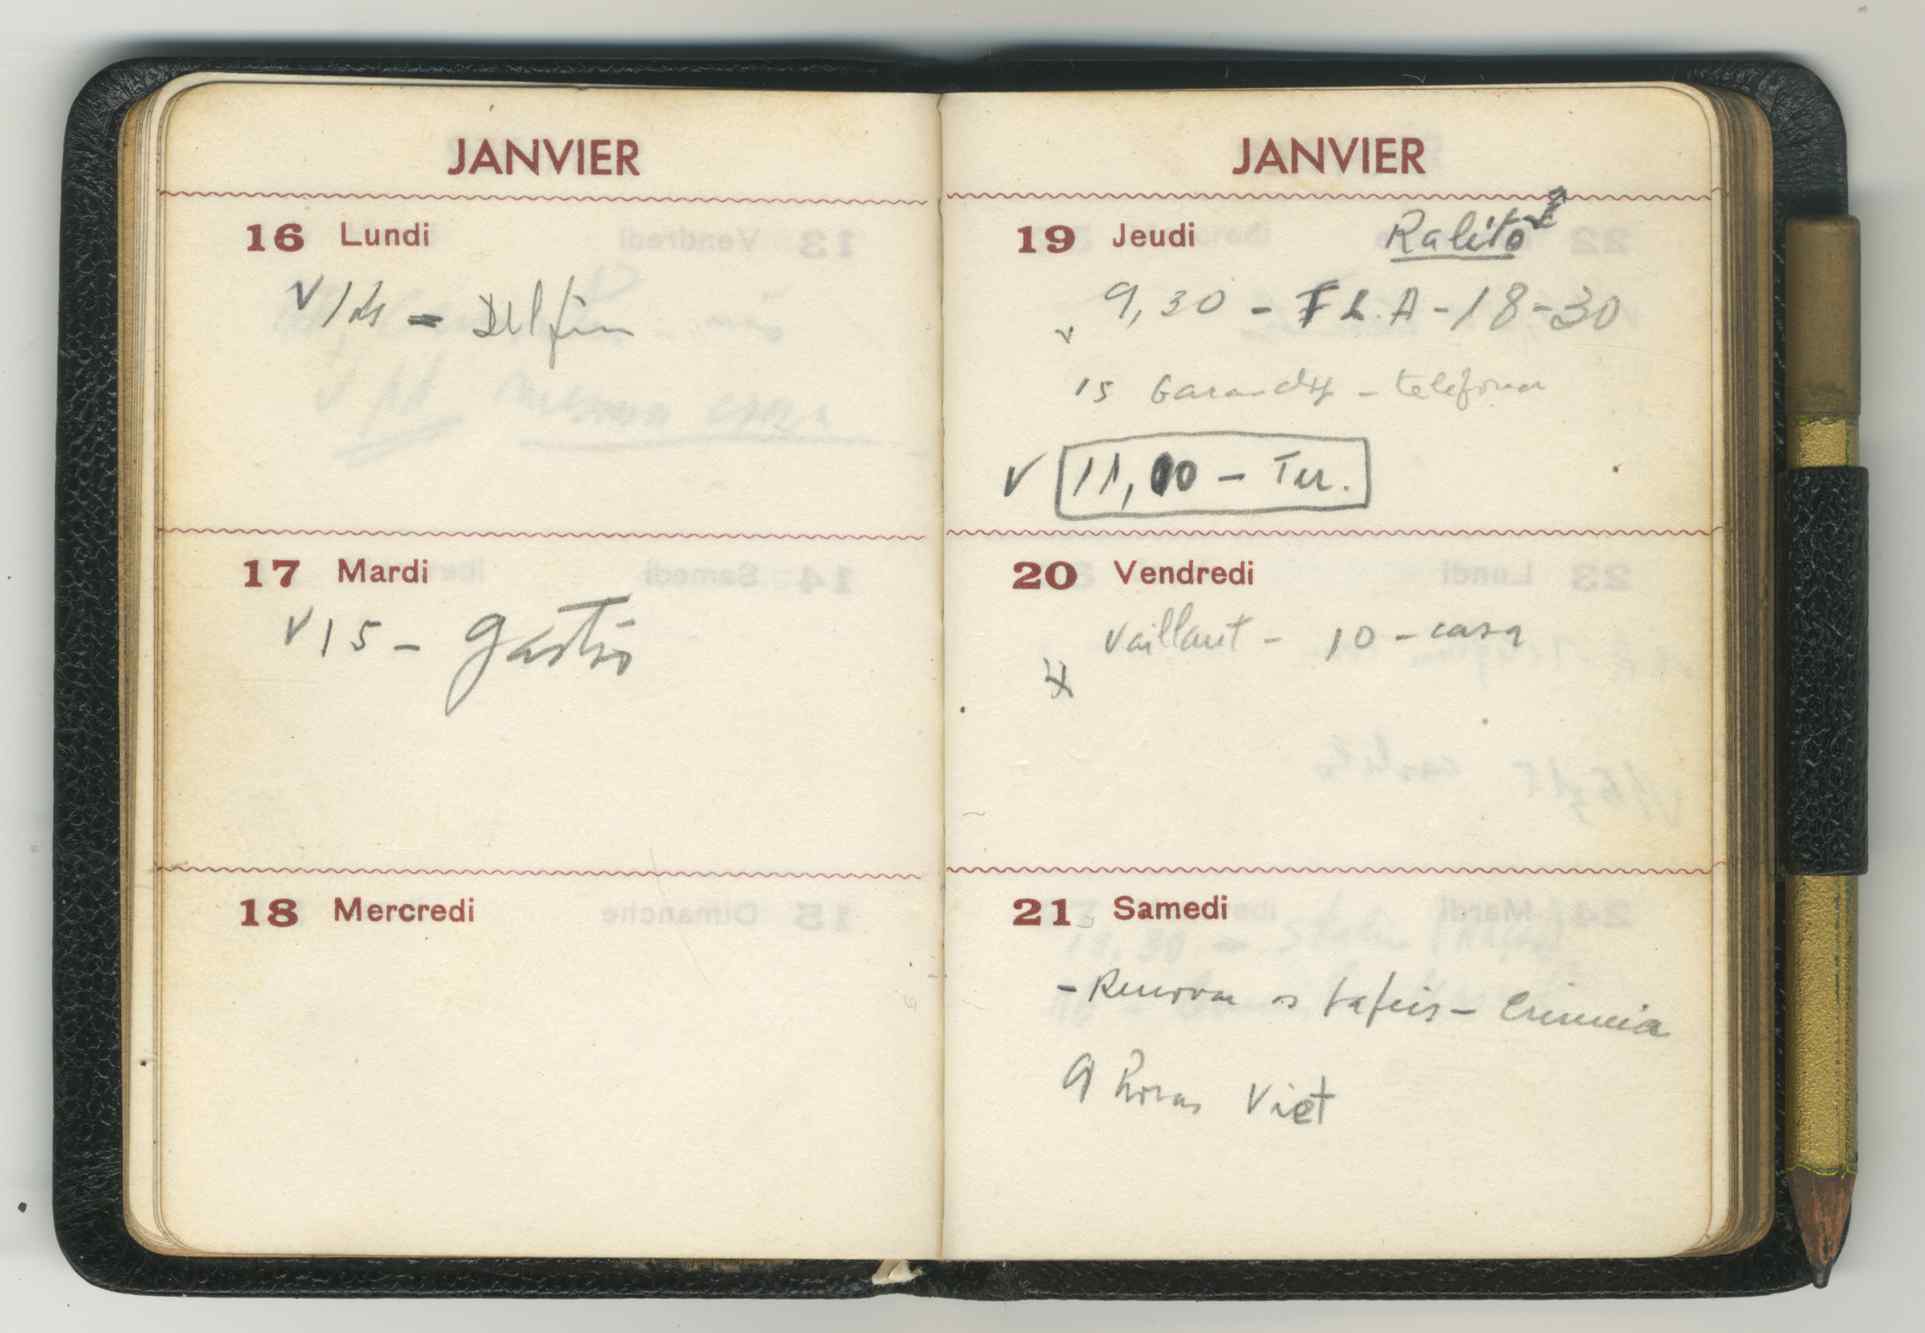 JANVIER
16 Lundi
V 14 - Delfim
17 Mardi
V 15 - gastão
18 Mercredi
JANVIER
19 Jeudi Ralito
V 9,30 - F L. A - 18-30
15 - telefonar
V 11,00 - Ter.
20 Vendredi
Vaillant - 10 - casa
21 Samedi
- Renovar os papeis -
9 horas Viet